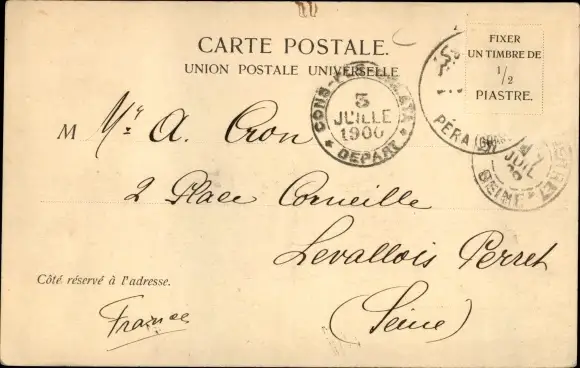 CARTE POSTALE.
UNION POSTALE UNIVERSELLE
FIXER
UN TIMBRE DE
1/2
PIASTRE.
3
JUILLE
1900
DEPART
PÉRA
JUIL
SEINE
M Mr. A. Cron
2 Place Corneille
Levallois Perret
(Seine)
Côté réservé à l'adresse.
France